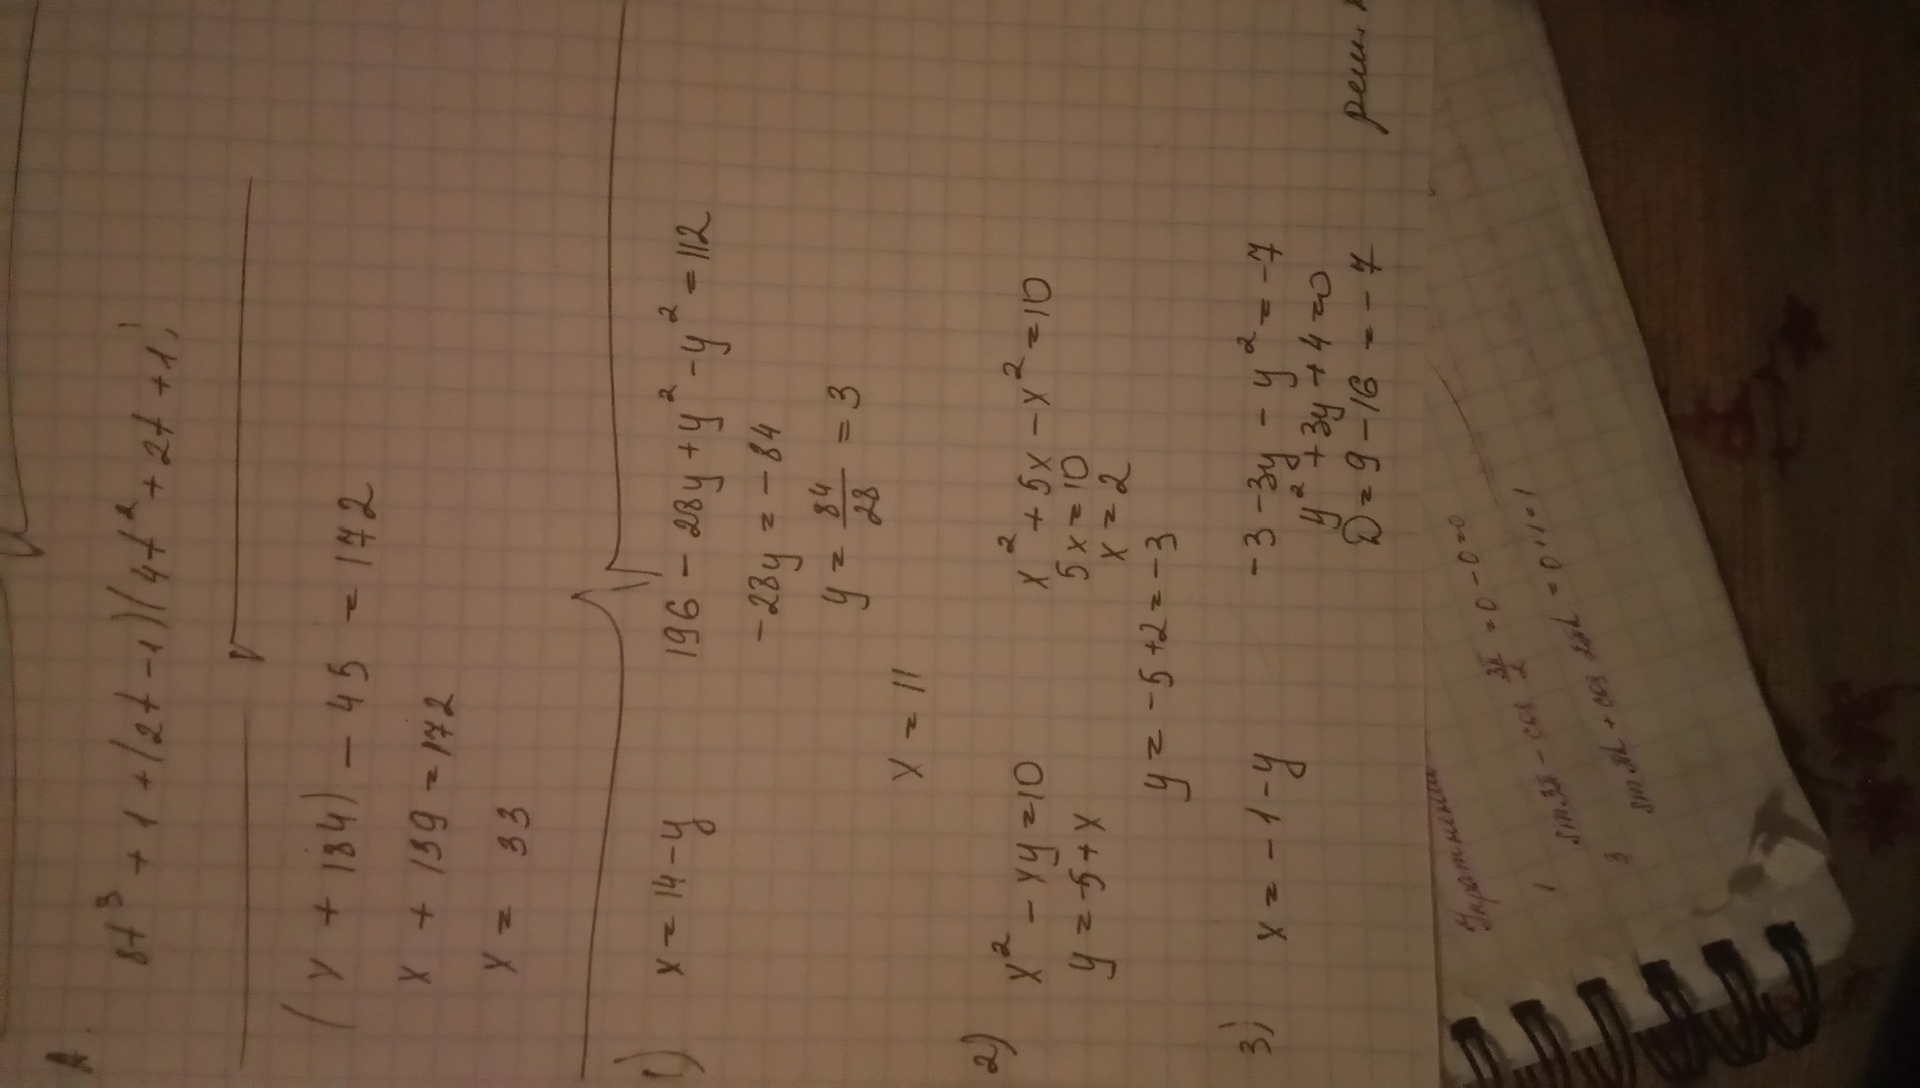 8t³ + 1 + (2t - 1)(4t² + 2t + 1)
(x + 184) - 45 = 172
x + 139 = 172
x = 33
1) x = 14 - y 196 - 28y + y² - y² = 112
-28y = -84
y = 84/28 = 3
x = 11
2) x² - xy = 10 x² + 5x - x² = 10
y = -5 + x 5x = 10
x = 2
y = -5 + 2 = -3
3) x = -1 - y -3 - 3y - y² = -7
y² + 3y + 4 = 0
D = 9 - 16 = -7
реш.
Упражнения
1 sin2π - cos 3π/2 = 0 - 0 = 0
3 sinπ + cos 2π = 0 + 1 = 1